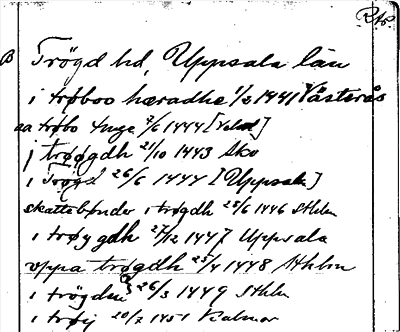 B Trögd hd, Uppsala län
i trøboo hæradhe 1/2 1441 Västerås
aa trøbo tinge 7/6 1444
j trøøgdh 21/10 1443 Sko
i Trøgd 26/6 1444 [Uppsala]
skattebønder i trøgdh 25/6 1446 Sthlm
i trøygdh 27/12 1447 Uppsala
vppa trøgdh 25/4 1448 Sthlm
i trögden 26/3 1449 Sthlm
i trøij 20/2 1451 Kalmar